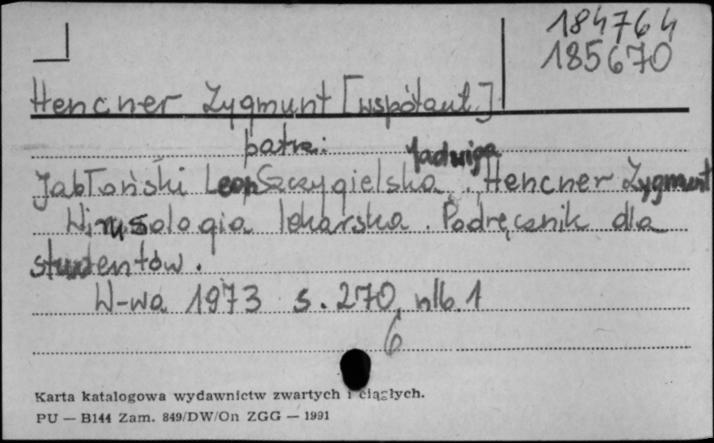 184764
185670
Hencner Zygmunt [współaut.]
patrz:
Jabłoński Leon Szczygielska Jadwiga. Hencner Zygmunt
Wirusologia lekarska. Podręcznik dla
studentów.
W-wa 1973 s. 270, nlb. 1
6
Karta katalogowa wydawnictw zwartych i ciągłych.
PU — B144 Zam. 849/DW/On ZGG — 1991